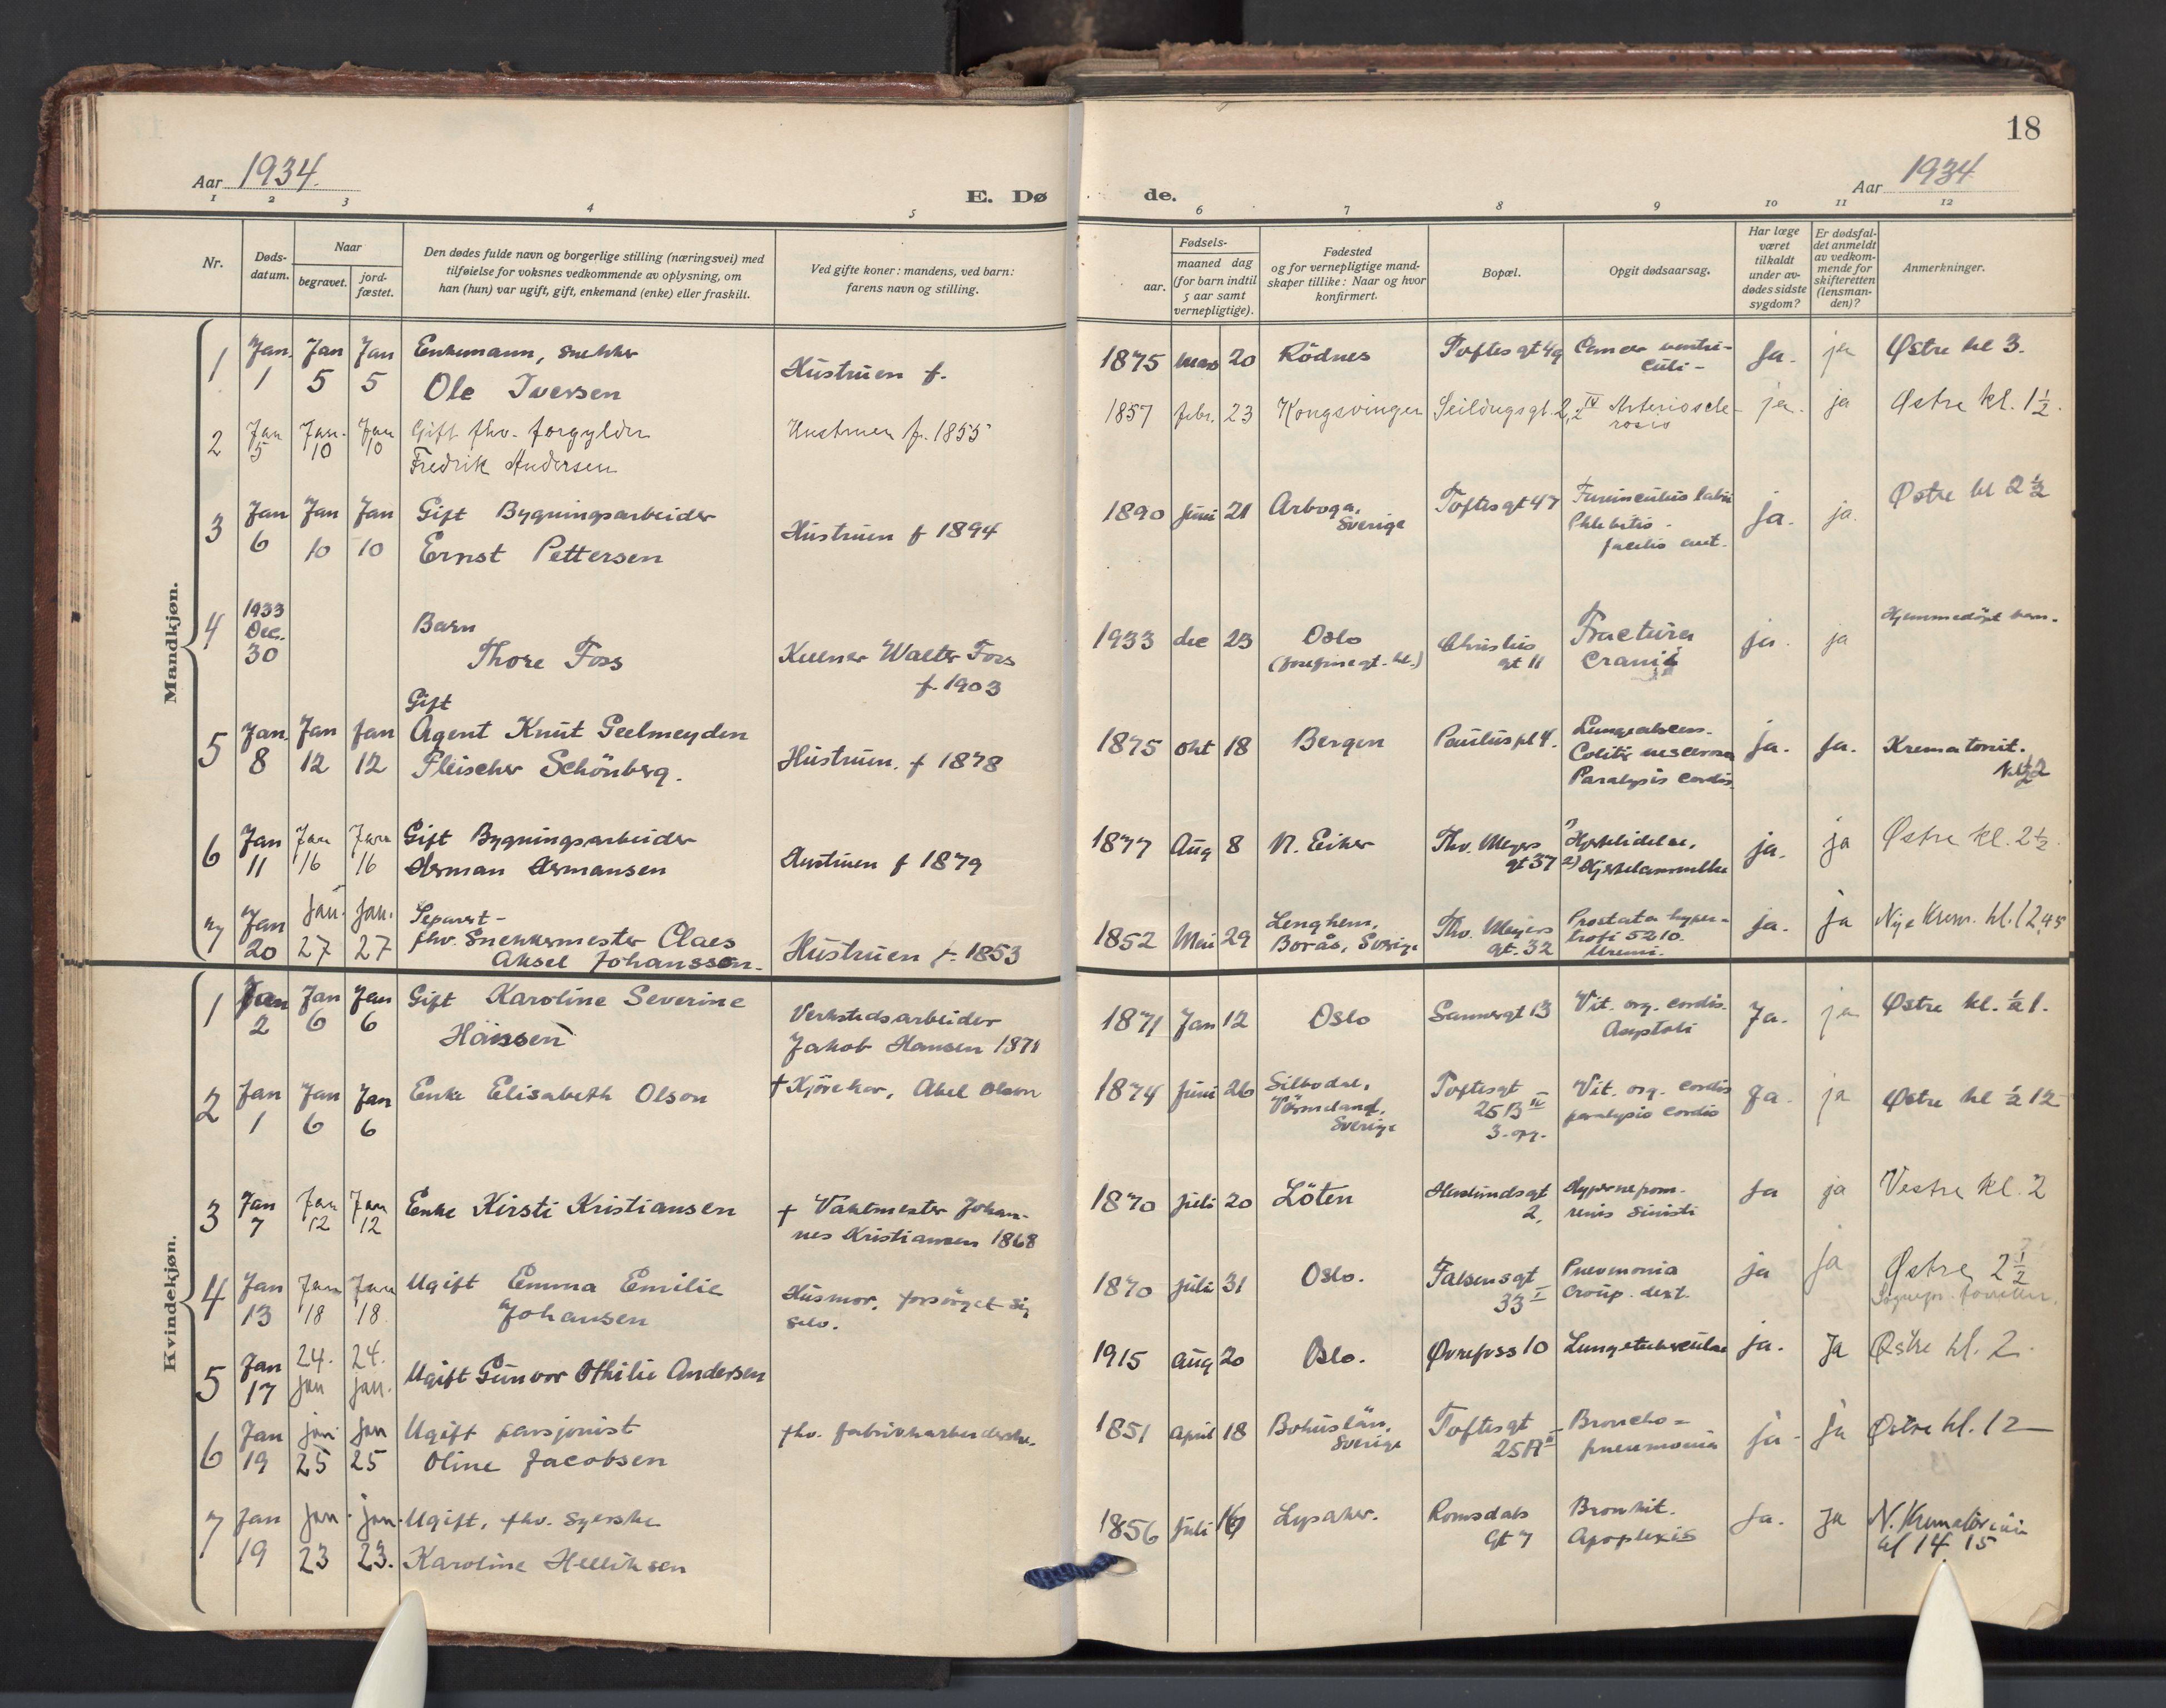 18
Aar 1934.
E. Dø
de.
Aar 1934
1 2 3 4 5 6 7 8 9 10 11 12
Nr.
Døds-
datum.
Naar
begravet.
jord-
fæstet.
Den dødes fulde navn og borgerlige stilling (næringsvei) med
tilføielse for voksnes vedkommende av oplysning, om
han (hun) var ugift, gift, enkemand (enke) eller fraskilt.
Ved gifte koner: mandens, ved barn:
farens navn og stilling.
Fødsels-
aar.
maaned dag
(for barn indtil
5 aar samt
vernepligtige).
Fødested
og for vernepligtige mand-
skaper tillike: Naar og hvor
konfirmert.
Bopæl.
Opgit dødsaarsag.
Har læge
været
tilkaldt
under av-
dødes sidste
sygdom?
Er dødsfal-
det anmeldt
av vedkom-
mende for
skifteretten
(lensman-
den)?
Anmerkninger.
Mandkjøn.
1 Jan. 1 Jan 5 Jan 5 Enkemann, snekker
Ole Iversen
Hustruen f.
1875 mars 20 Rödnes Toftes gt 49 Cancer ventri-
culi - Ja. ja Østre kl 3.
2 Jan 5 Jan. 10 Jan 10 Gift fhv. forgylder
Fredrik Andersen
Hustruen f. 1855
1857 febr. 23 Kongsvinger Seildugsgt. 2, IV Arterioscle-
rosis ja. ja Østre kl. 1 1/2.
3 Jan 6 Jan 10 Jan 10 Gift Bygningsarbeider
Ernst Pettersen
Hustruen f 1894
1890 Juni 21 Arboga,
Sverige
Toftes gt 47 Furunculus labii
Phlebitis -
ja. ja. Østre kl 2 1/2
4 1933 Dec. 30 Barn
Thore Foss
Kelner Walter Foss
f. 1903
1933 dec 23 Oslo
(Josefinegt. kl.)
gt 11
Fractura
cranii
ja. ja Hjemmedöpt barn.
5 Jan. 8 Jan 12 Jan 12 Gift
Agent Knut Geelmeyden
Fleischer Schönberg.
Hustruen. f 1878
1875 Okt 18 Bergen Paulus pl 4. Lungeabscess.
Colitis ulcerosa
Paralysis cordis.
ja. Ja. Krematoriet.
kl 1/2 2
6 Jan 11 Jan 16 Jan 16 Gift Bygningsarbeider
Herman Hermansen
Hustruen f 1879
1877 Aug 8 N. Eiker Thv. Meyers
gt 37
1) Hjertelidelse,
2) Hjertelammelse
ja. ja Østre kl. 2 1/2.
7 Jan 20 Jan. 27 Jan. 27 Separert -
fhv. Snekkermester Claes
Aksel Johansson.
Hustruen f. 1853
1852 Mai 29 Lenghem,
Borås, Sverige
Thv. Meyers
gt. 32
Prostata hyper-
trofi 5210.
Uremi.
ja. ja Nye Krem. kl. 12,45
Kvindekjøn.
1 Jan 2 Jan 6 Jan 6 Gift Karoline Severine
Hansen
Verkstedsarbeider
Jakob Hansen 1871
1871 Jan 12 Oslo Sannergt 13 Vit. org. cordis.
Asystoli
Ja. ja Østre kl. 1/2 1.
2 Jan 1 Jan 6 Jan 6 Enke Elisabeth Olson
† Kjörekar, Abel Olson
1874 Juni 26 Silbodal,
Värmeland,
Sverige
Toftesgt
25 B IV
3. opg.
Vit. org. cordis
paralysis cordis
Ja. ja Østre kl 1/2 12
3 Jan 7 Jan 12 Jan 12 Enke Kirsti Kristiansen
† Vaktmester Johan-
nes Kristiansen 1868
1870 Juli 20 Löten Haslundsgt
2,
renis sinistri
Ja ja Vestre kl. 2
4 Jan 13 Jan 18 Jan 18 Ugift Emma Emilie
Johansen
Husmor, forsörget sig
selv.
1870 Juli 31 Oslo. Falsensgt
33 I
Pneumonia
Croup. dext.
ja Ja Østre 2 1/2
Sognepr. forretter.
5 Jan 17 24. jan 24. jan. Ugift Gunvor Othilie Andersen
1915 Aug 20 Oslo. Øvrefoss 10 Lungetuberculose ja. Ja Østre kl. 2.
6 Jan 19 jan. 25 jan 25 Ugift pensjonist
Oline Jacobsen
fhv. fabrikkarbeiderske.
1851 April 18 Bohuslän,
Sverige
Toftesgt
25 A II
Broncho=
pneumonia
ja. ja Østre kl. 12
7 Jan 19 jan. 23 jan. 23. Ugift, fhv. syerske
Karoline Helliksen
1856 Juli Lysaker. Romsdals
Gt 7
Bronkit.
Apoplexis
Ja. Ja N. Krematorium
kl 14 15